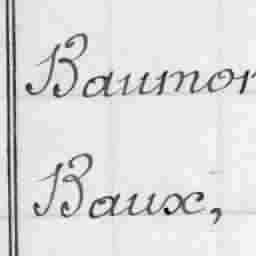 Baumon
Baux,